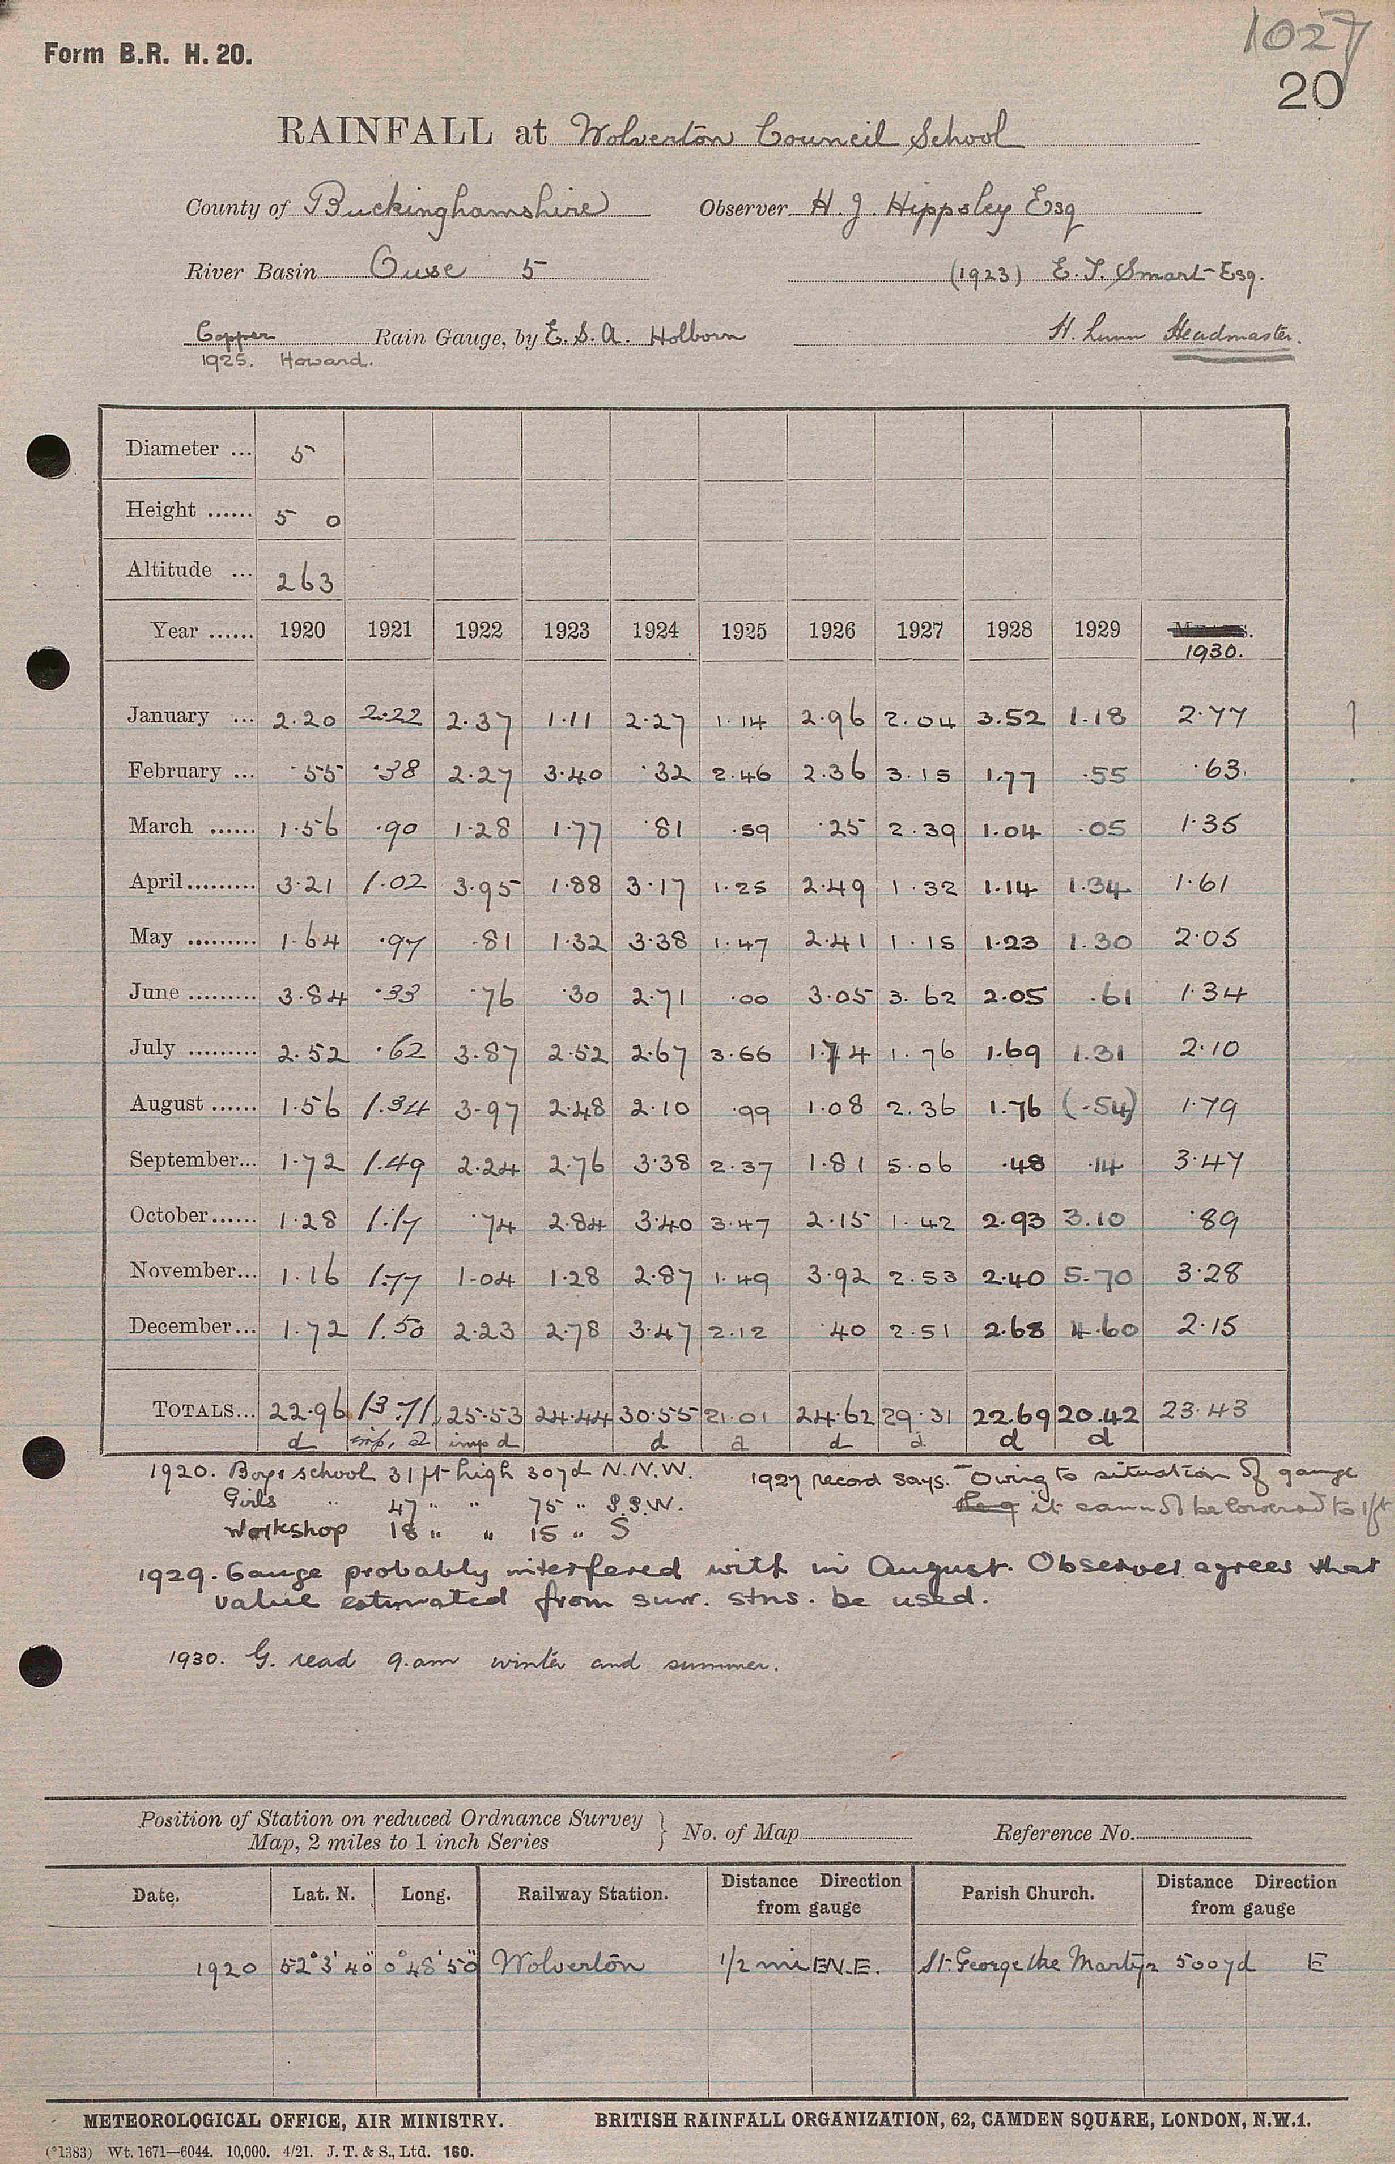 1027
Form B.R. H. 20.
20
RAINFALL at Wolverton Council School
County of Buckinghamshire Observer H. J. Hippsley Esq
River Basin Ouse 5 (1923) E. T. Smart Esq.
Copper Rain Gauge, by E. S. A. Holborn H. Lunn Headmaster.
1925. Howard.
Diameter ... 5
Height ...... 5 0
Altitude ... 263
Year ...... 1920 1921 1922 1923 1924 1925 1926 1927 1928 1929 1930.
January ... 2.20 2.22 2.37 1.11 2.27 1.14 2.96 2.04 3.52 1.18 2.77
February ... .55 .38 2.27 3.40 .32 2.46 2.36 3.15 1.77 .55 .63
March ...... 1.56 .90 1.28 1.77 .81 .59 .25 2.39 1.04 .05 1.35
April ......... 3.21 1.02 3.95 1.88 3.17 1.25 2.49 1.32 1.14 1.34 1.61
May ......... 1.64 .97 .81 1.32 3.38 1.47 2.41 1.15 1.23 1.30 2.05
June ......... 3.84 .33 .76 .30 2.71 .00 3.05 3.62 2.05 .61 1.34
July ......... 2.52 .62 3.87 2.52 2.67 3.66 1.74 1.76 1.69 1.31 2.10
August ...... 1.56 1.34 3.97 2.48 2.10 .99 1.08 2.36 1.76 (.54) 1.79
September... 1.72 1.49 2.24 2.76 3.38 2.37 1.81 5.06 .48 .14 3.47
October...... 1.28 1.17 .74 2.84 3.40 3.47 2.15 1.42 2.93 3.10 .89
November... 1.16 1.77 1.04 1.28 2.87 1.49 3.92 2.53 2.40 5.70 3.28
December... 1.72 1.50 2.23 2.78 3.47 2.12 .40 2.51 2.68 4.60 2.15
TOTALS... 22.96 13.71 25.53 24.44 30.55 21.01 24.62 29.31 22.69 20.42 23.43
d imp. d imp d d d d d d d
1920. Boys school 31 ft high 30 yd N.N.W. 1927 record says. "Owing to situation of gauge
Girls " 47 " " 75 " S.S.W. it cannot be lowered to 1 ft
Workshop 18 " " 15 " S
1929. Gauge probably interfered with in August. Observer agrees that
value estimated from surr. stns. be used.
1930. G. read 9.am winter and summer.
Position of Station on reduced Ordnance Survey
Map, 2 miles to 1 inch Series } No. of Map Reference No.
Date. Lat. N. Long. Railway Station. Distance Direction from gauge Parish Church. Distance Direction from gauge
1920 52° 3' 40" 0° 48' 50" Wolverton 1/2 mi E.N.E. St. George the Martyr 500 yd E
METEOROLOGICAL OFFICE, AIR MINISTRY. BRITISH RAINFALL ORGANIZATION, 62, CAMDEN SQUARE, LONDON, N.W.1.
(*1383) Wt. 1671—6044. 10,000. 4/21. J. T. & S., Ltd. 160.